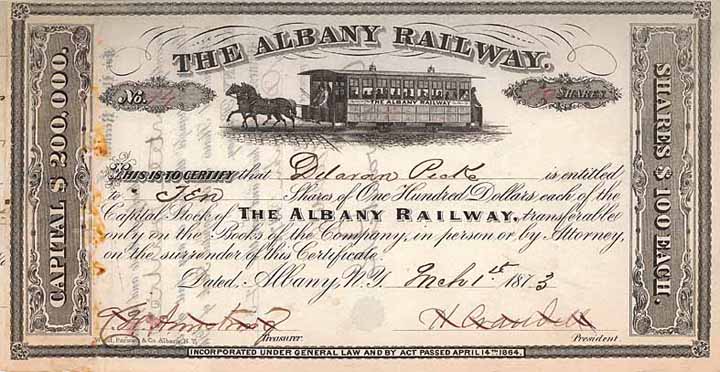 THE ALBANY RAILWAY.
No.
SHARES
THE ALBANY RAILWAY
CAPITAL $ 200,000.
SHARES $ 100 EACH.
THIS IS TO CERTIFY that Delavan Peck is entitled
to TEN Shares of One Hundred Dollars each of the
Capital Stock of THE ALBANY RAILWAY, transferable
only on the Books of the Company, in person or by Attorney,
on the surrender of this Certificate.
Dated, Albany, N.Y. Mch 1st 1873
Armstrong
Treasurer.
President.
& Co Albany, N.Y.
INCORPORATED UNDER GENERAL LAW AND BY ACT PASSED APRIL 14TH 1864.